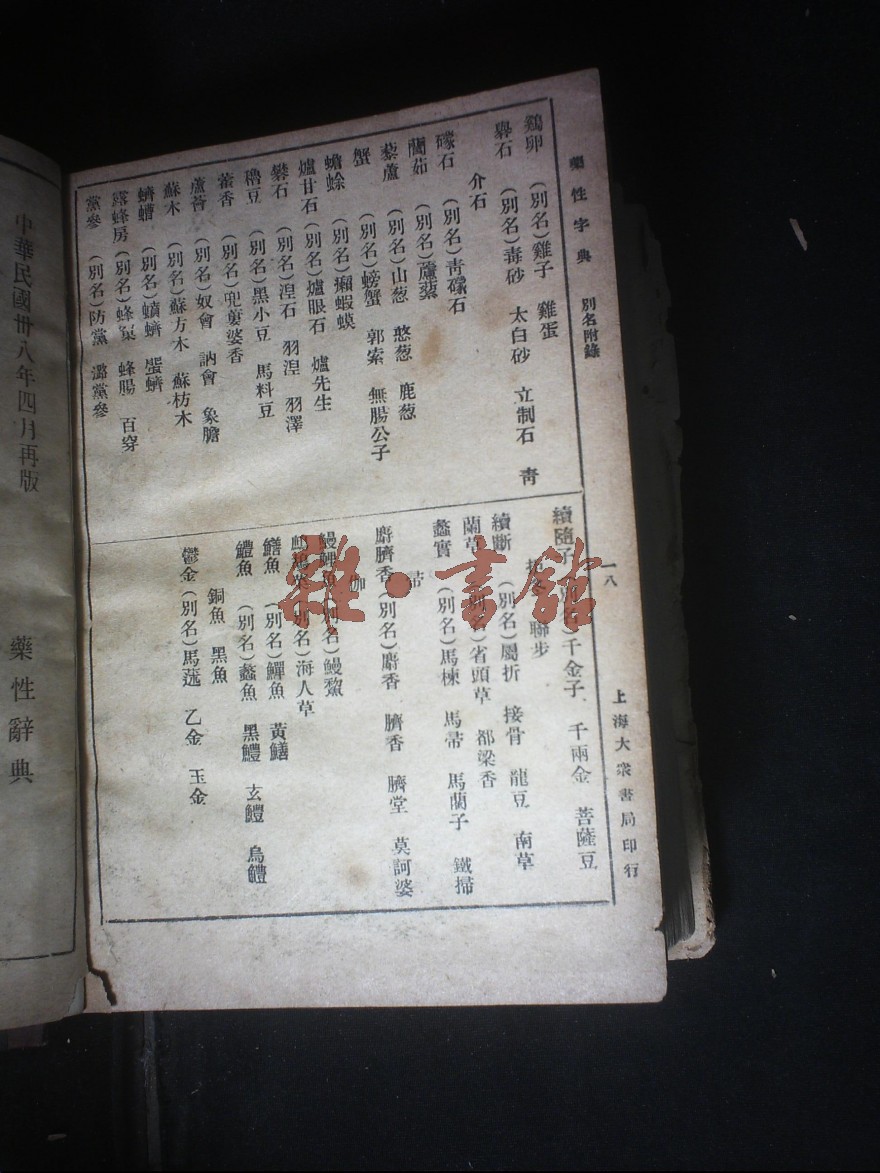 藥性字典 別名附錄 一八 上海大衆書局印行
鷄卵 (別名)雞子 雞蛋
礜石 (別名)毒砂 太白砂 立制石 青
介石
礞石 (別名)青礞石
藺茹 (別名)藘蕠
藜蘆 (別名)山葱 憨葱 鹿葱
蟹 (別名)螃蟹 郭索 無腸公子
蟾蜍 (別名)癩蝦蟆
爐甘石 (別名)爐眼石 爐先生
礬石 (別名)湼石 羽湼 羽澤
穭豆 (別名)黑小豆 馬料豆
藿香 (別名)兜婁婆香
蘆薈 (別名)奴會 訥會 象膽
蘇木 (別名)蘇方木 蘇枋木
蠐螬 (別名)蟦蠐 蜚蠐
露蜂房 (別名)蜂窠 蜂腸 百穿
黨參 (別名)防黨 潞黨參
續隨子 (別名)千金子 千兩金 菩薩豆
拒冬 聯步
續斷 (別名)屬折 接骨 龍豆 南草
蘭草 (別名)省頭草 都梁香
蠡實 (別名)馬楝 馬帚 馬蘭子 鐵掃
帚
麝臍香 (別名)麝香 臍香 臍堂 莫訶婆
伽
鰻鱺魚 (別名)鰻鱉
鷓鴣菜 (別名)海人草
鱔魚 (別名)鱓魚 黃鱔
鱧魚 (別名)蠡魚 黑鱧 玄鱧 烏鱧
銅魚 黑魚
鬱金 (別名)馬蒁 乙金 玉金
中華民國卅八年四月再版
藥性辭典
雜·書館